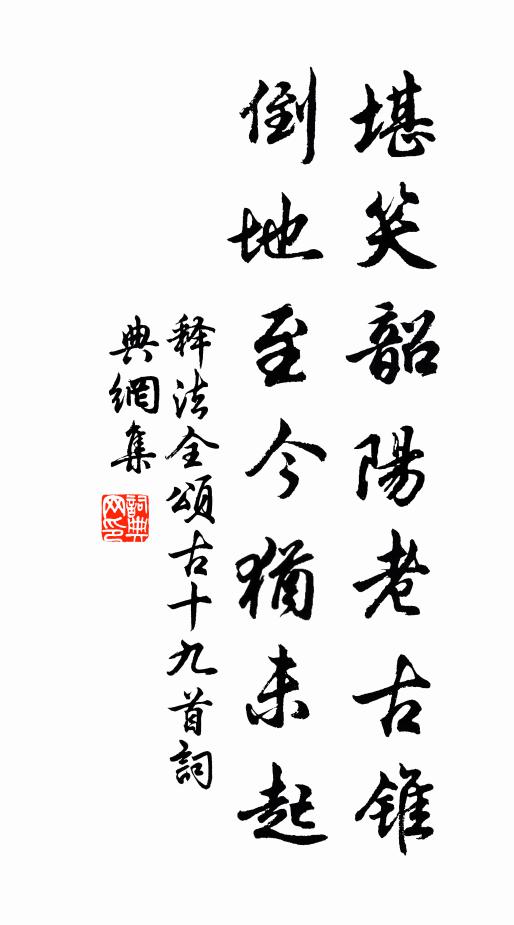 堪笑韶陽老古錐
倒地至今猶未起
释法全頌古十九首詞
典網集
詞典网印